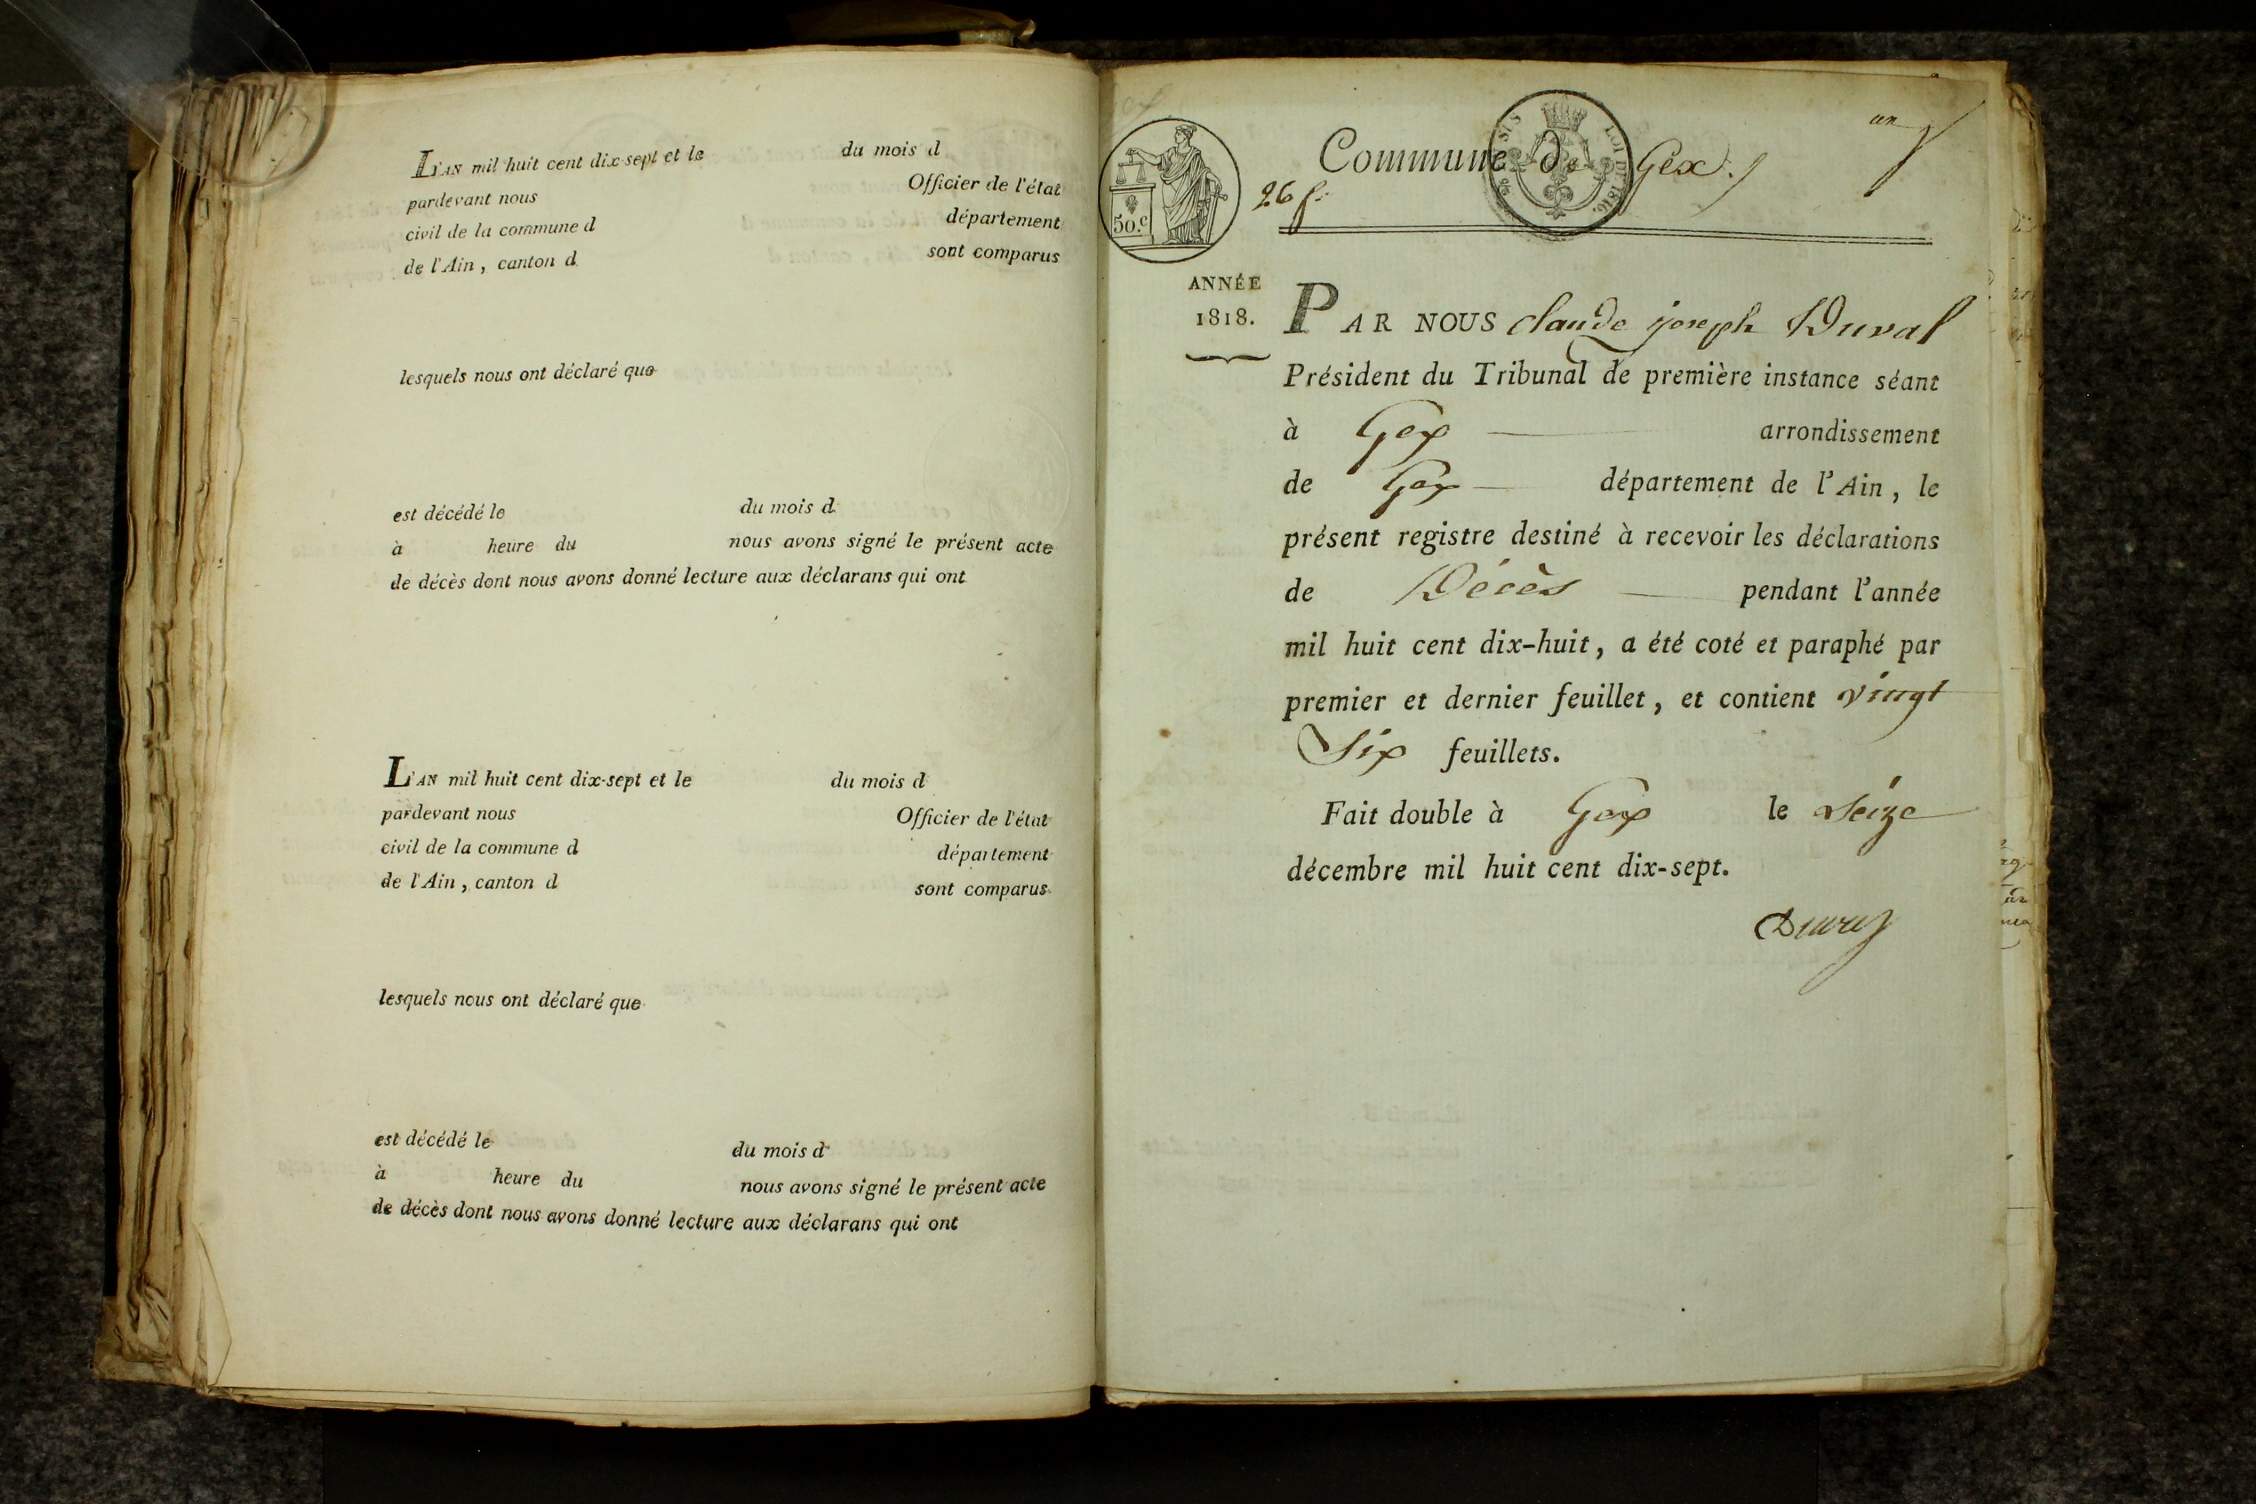 L'AN mil huit cent dix-sept et le du mois d
pardevant nous Officier de l'état
civil de la commune d département
de l'Ain, canton d sont comparus
lesquels nous ont déclaré que
est décédé le du mois d
à heure du nous avons signé le présent acte
de décès dont nous avons donné lecture aux déclarans qui ont
L'AN mil huit cent dix-sept et le du mois d
pardevant nous Officier de l'état
civil de la commune d département
de l'Ain, canton d sont comparus
lesquels nous ont déclaré que
est décédé le du mois d
à heure du nous avons signé le présent acte
de décès dont nous avons donné lecture aux déclarans qui ont
un
Commune de Gex
LOI DE 1816.
50.c
26 f.
ANNÉE
1818.
PAR NOUS Claude joseph Duval
Président du Tribunal de première instance séant
à Gex arrondissement
de Gex département de l'Ain, le
présent registre destiné à recevoir les déclarations
de Décès pendant l'année
mil huit cent dix-huit, a été coté et paraphé par
premier et dernier feuillet, et contient vingt
Six feuillets.
Fait double à Gex le Seize
décembre mil huit cent dix-sept.
Duval